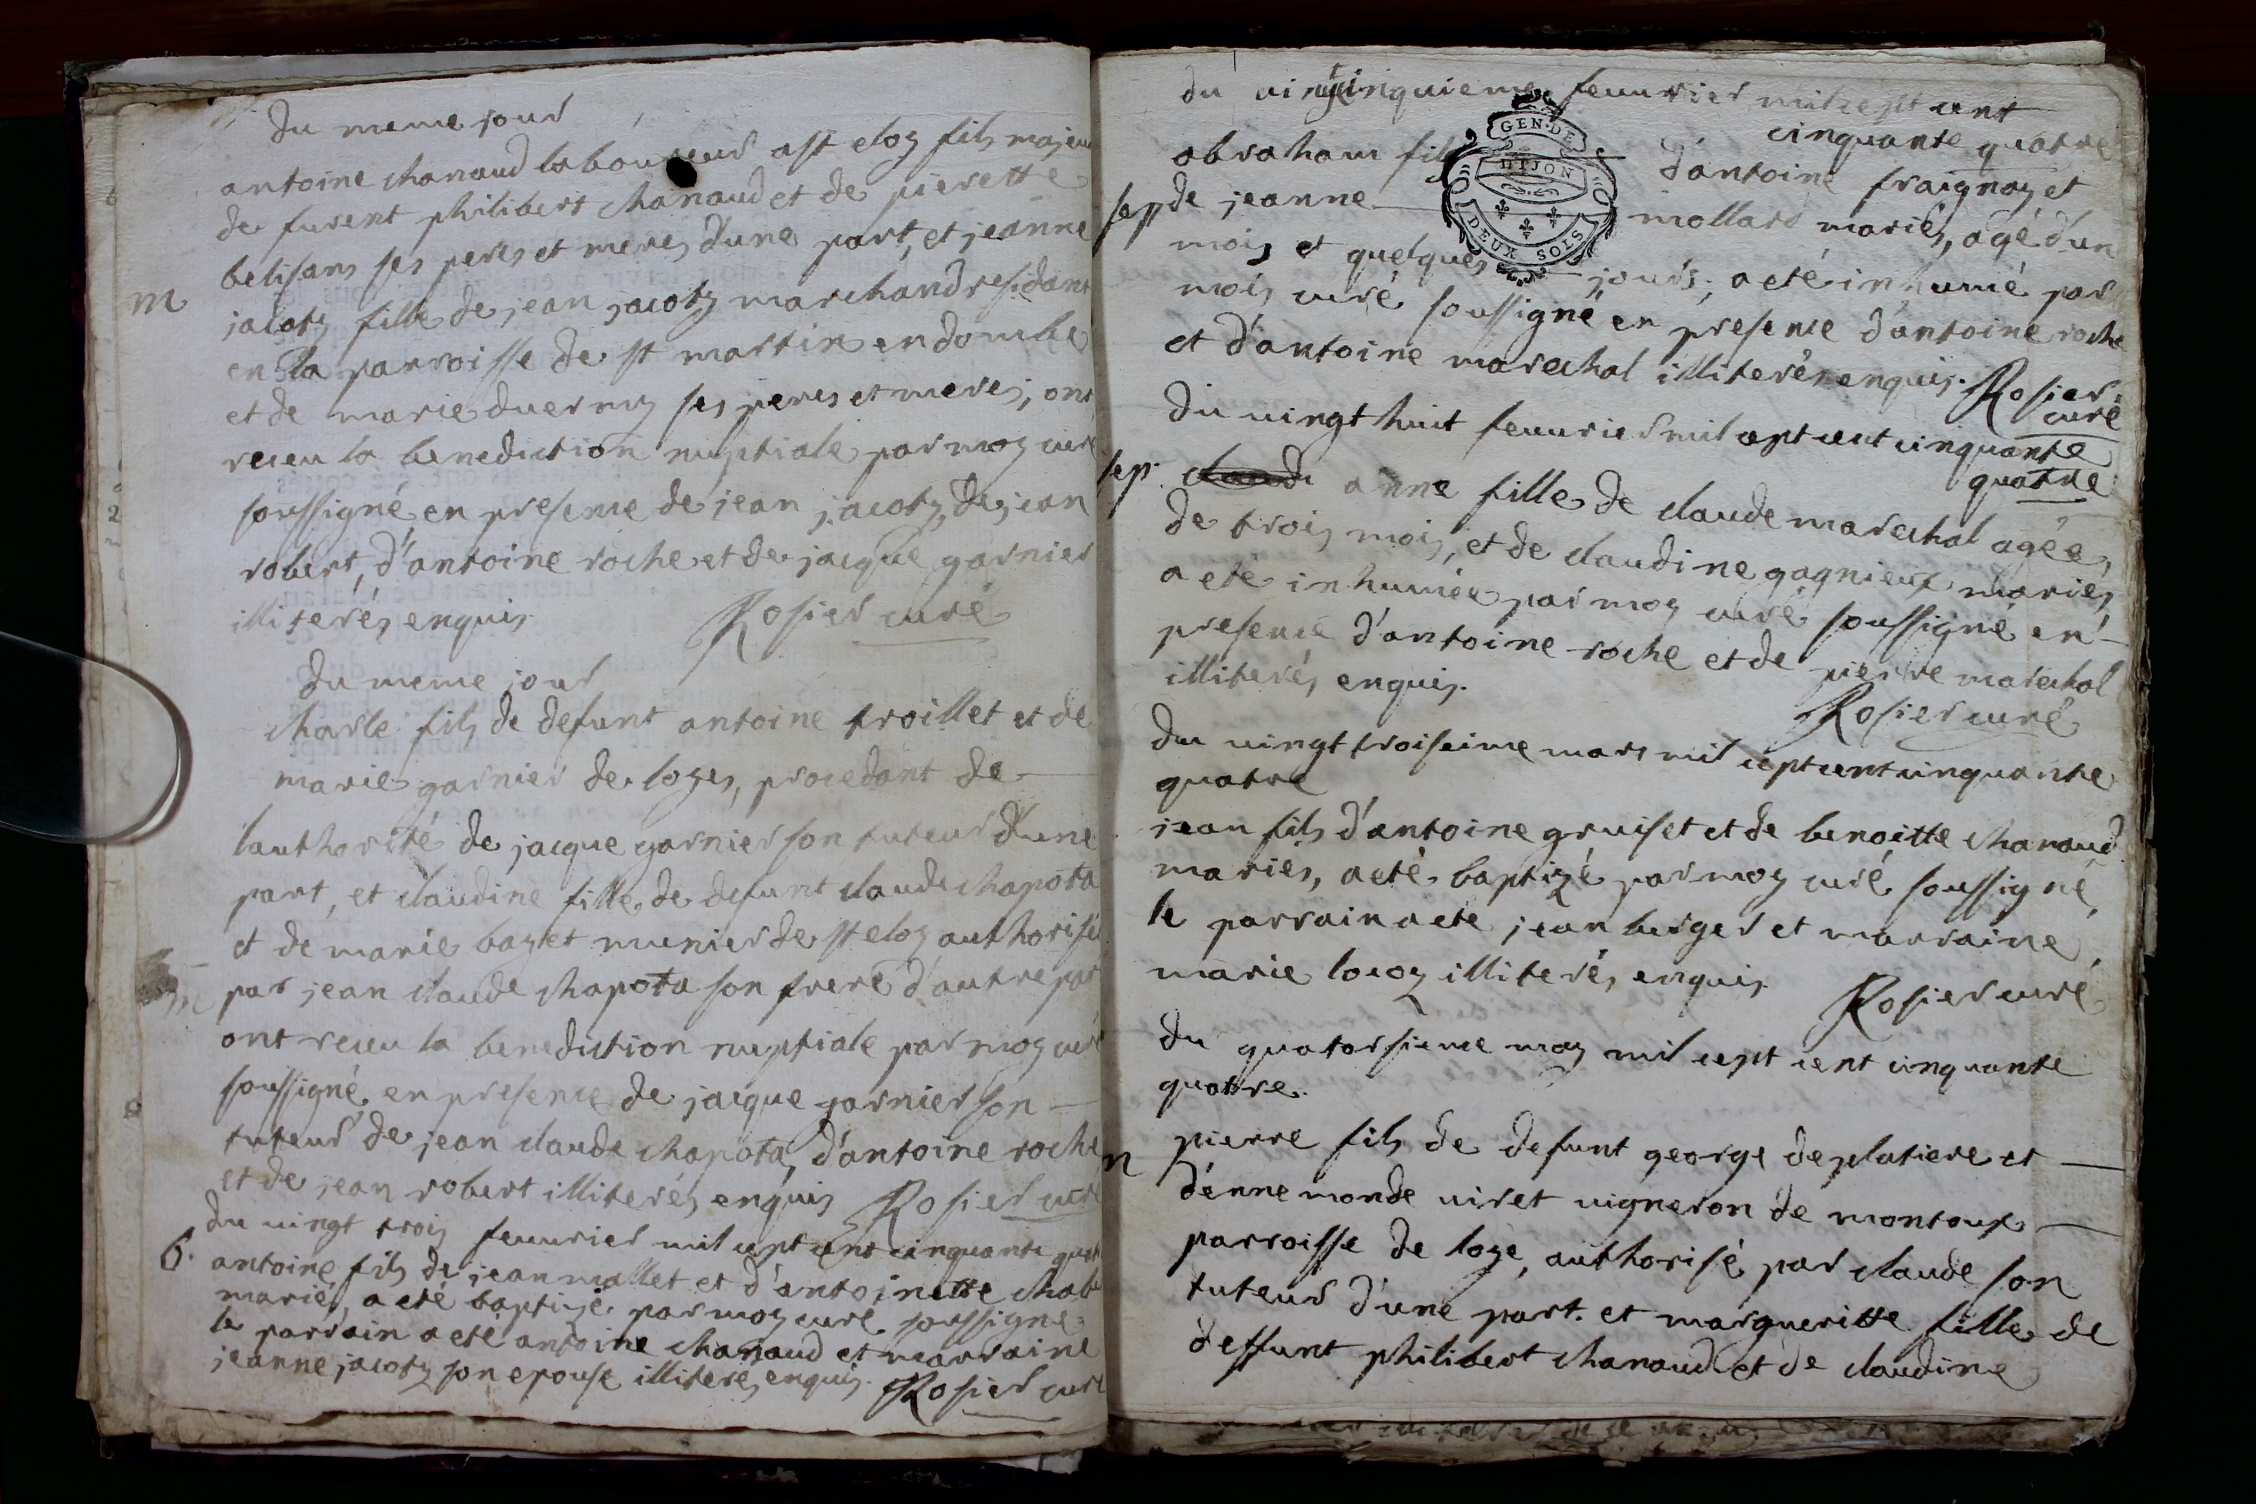 du meme jour
antoine chanaud laboureur a st eloy fils majeur
de furent philibert chanaud et de pierette
belisans ses peres et meres d'une part, et jeanne
m
jacoty fille de jean jacoty marchand residant
en la parroisse de st martin en dombe
et de marie duermy ses peres et meres, ont
receu la benediction nuptiale par moy curé
soussigné en presence de jean jacoty, de jean
robert, d'antoine roche et de jacque garnier
illiterés enquis. Rosier curé
du meme jour
charle fils de defunt antoine troillet et de
marie garnier de loyes, procedant de
lauthorité de jacque garnier son tuteur d'une
part, et claudine fille de defunt claude chapota
et de marie bayet munier de st eloy authorisée
m
par jean claude chapota son frere d'autre part
ont receu la benediction nuptiale par moy curé
soussigné en presence de jacque garnier son
tuteur de jean claude chapota, d'antoine roche
et de jean robert illiterés enquis Rosier curé
du vingt trois feuurier mil cept cent cinquante quat
b. antoine fils de jean mallet et d'antoinette chab
mariés, a eté baptizé par moy curé soussigné
le parrain a eté antoine chanaud et marraine
jeanne jacoty son epouse illiterés enquis. Rosier curé
du vingtcinquieme feuurier mil cept cent
cinquante quatre
GEN. DE
DIJON
DEUX SOLS
abraham fils d'antoine fraignay et
sep de jeanne mollard mariés, agé d'un
mois et quelques jours, a eté inhumé par
mois curé soussigné en presence d'antoine roche
et d'antoine marechal illiterés enquis. Rosier
curé
du vingt huit feuurier mil cept cent cinquante
quatre
sep. claude anne fille de claude marechal agée
de trois mois, et de claudine gagnieux mariés
a eté inhumée par moy curé soussigné en
presence d'antoine roche et de pierre marechal
illiterés enquis.
Rosier curé
du vingt troiseime mars mil cept cent cinquante
quatre
jean fils d'antoine gruiset et de benoitte chanaud
mariés, a eté baptizé par moy curé soussigné
le parrain a eté jean berger et marraine
marie locoy illiterés enquis.
Rosier curé
du quatorsieme may mil cept cent cinquante
quatre.
pierre fils de defunt george deplatiere et
m
d'ennemonde viret vigneron de montoux
parroisse de loye, authorisé par claude son
tuteur d'une part. et margueritte fille de
deffunt philibert chanaud et de claudine